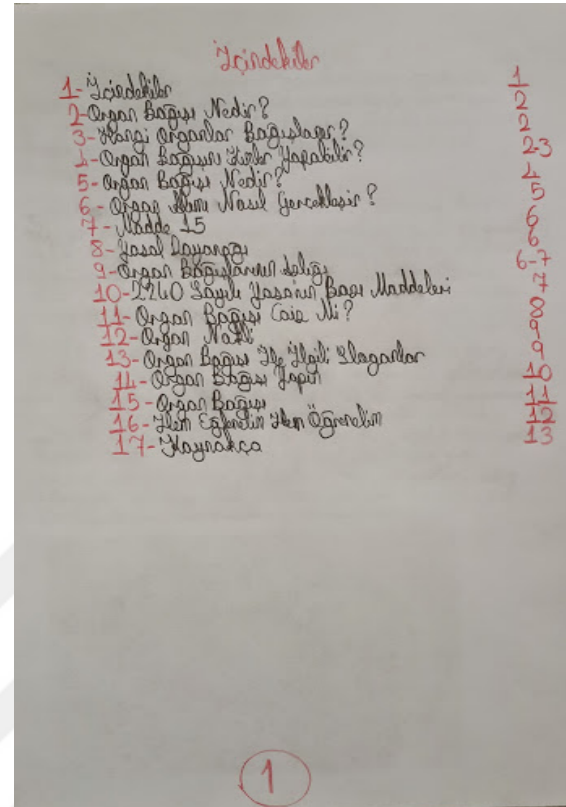 İçindekiler
1- İçindekiler 1
2- Organ Bağışı Nedir? 2
3- Hangi Organlar Bağışlanır? 2
4- Organ Bağışını Kimler Yapabilir? 2-3
5- Organ Bağışı Nedir? 4
6- Organ Nasıl Gerçekleşir? 5
7- Madde 15 6
8- Yasal Dayanağı 6
9- Organ 6-7
10- 2240 Sayılı Yasanın Bazı Maddeleri 7
11- Organ Bağışı Caiz Mi? 8
12- Organ Nakli 9
13- Organ Bağışı İle İlgili Sloganlar 9
14- Organ Bağışı Yapın 10
15- Organ Bağışı 11
16- Hem Eğlenelim Hem Öğrenelim 12
17- Kaynakça 13
1